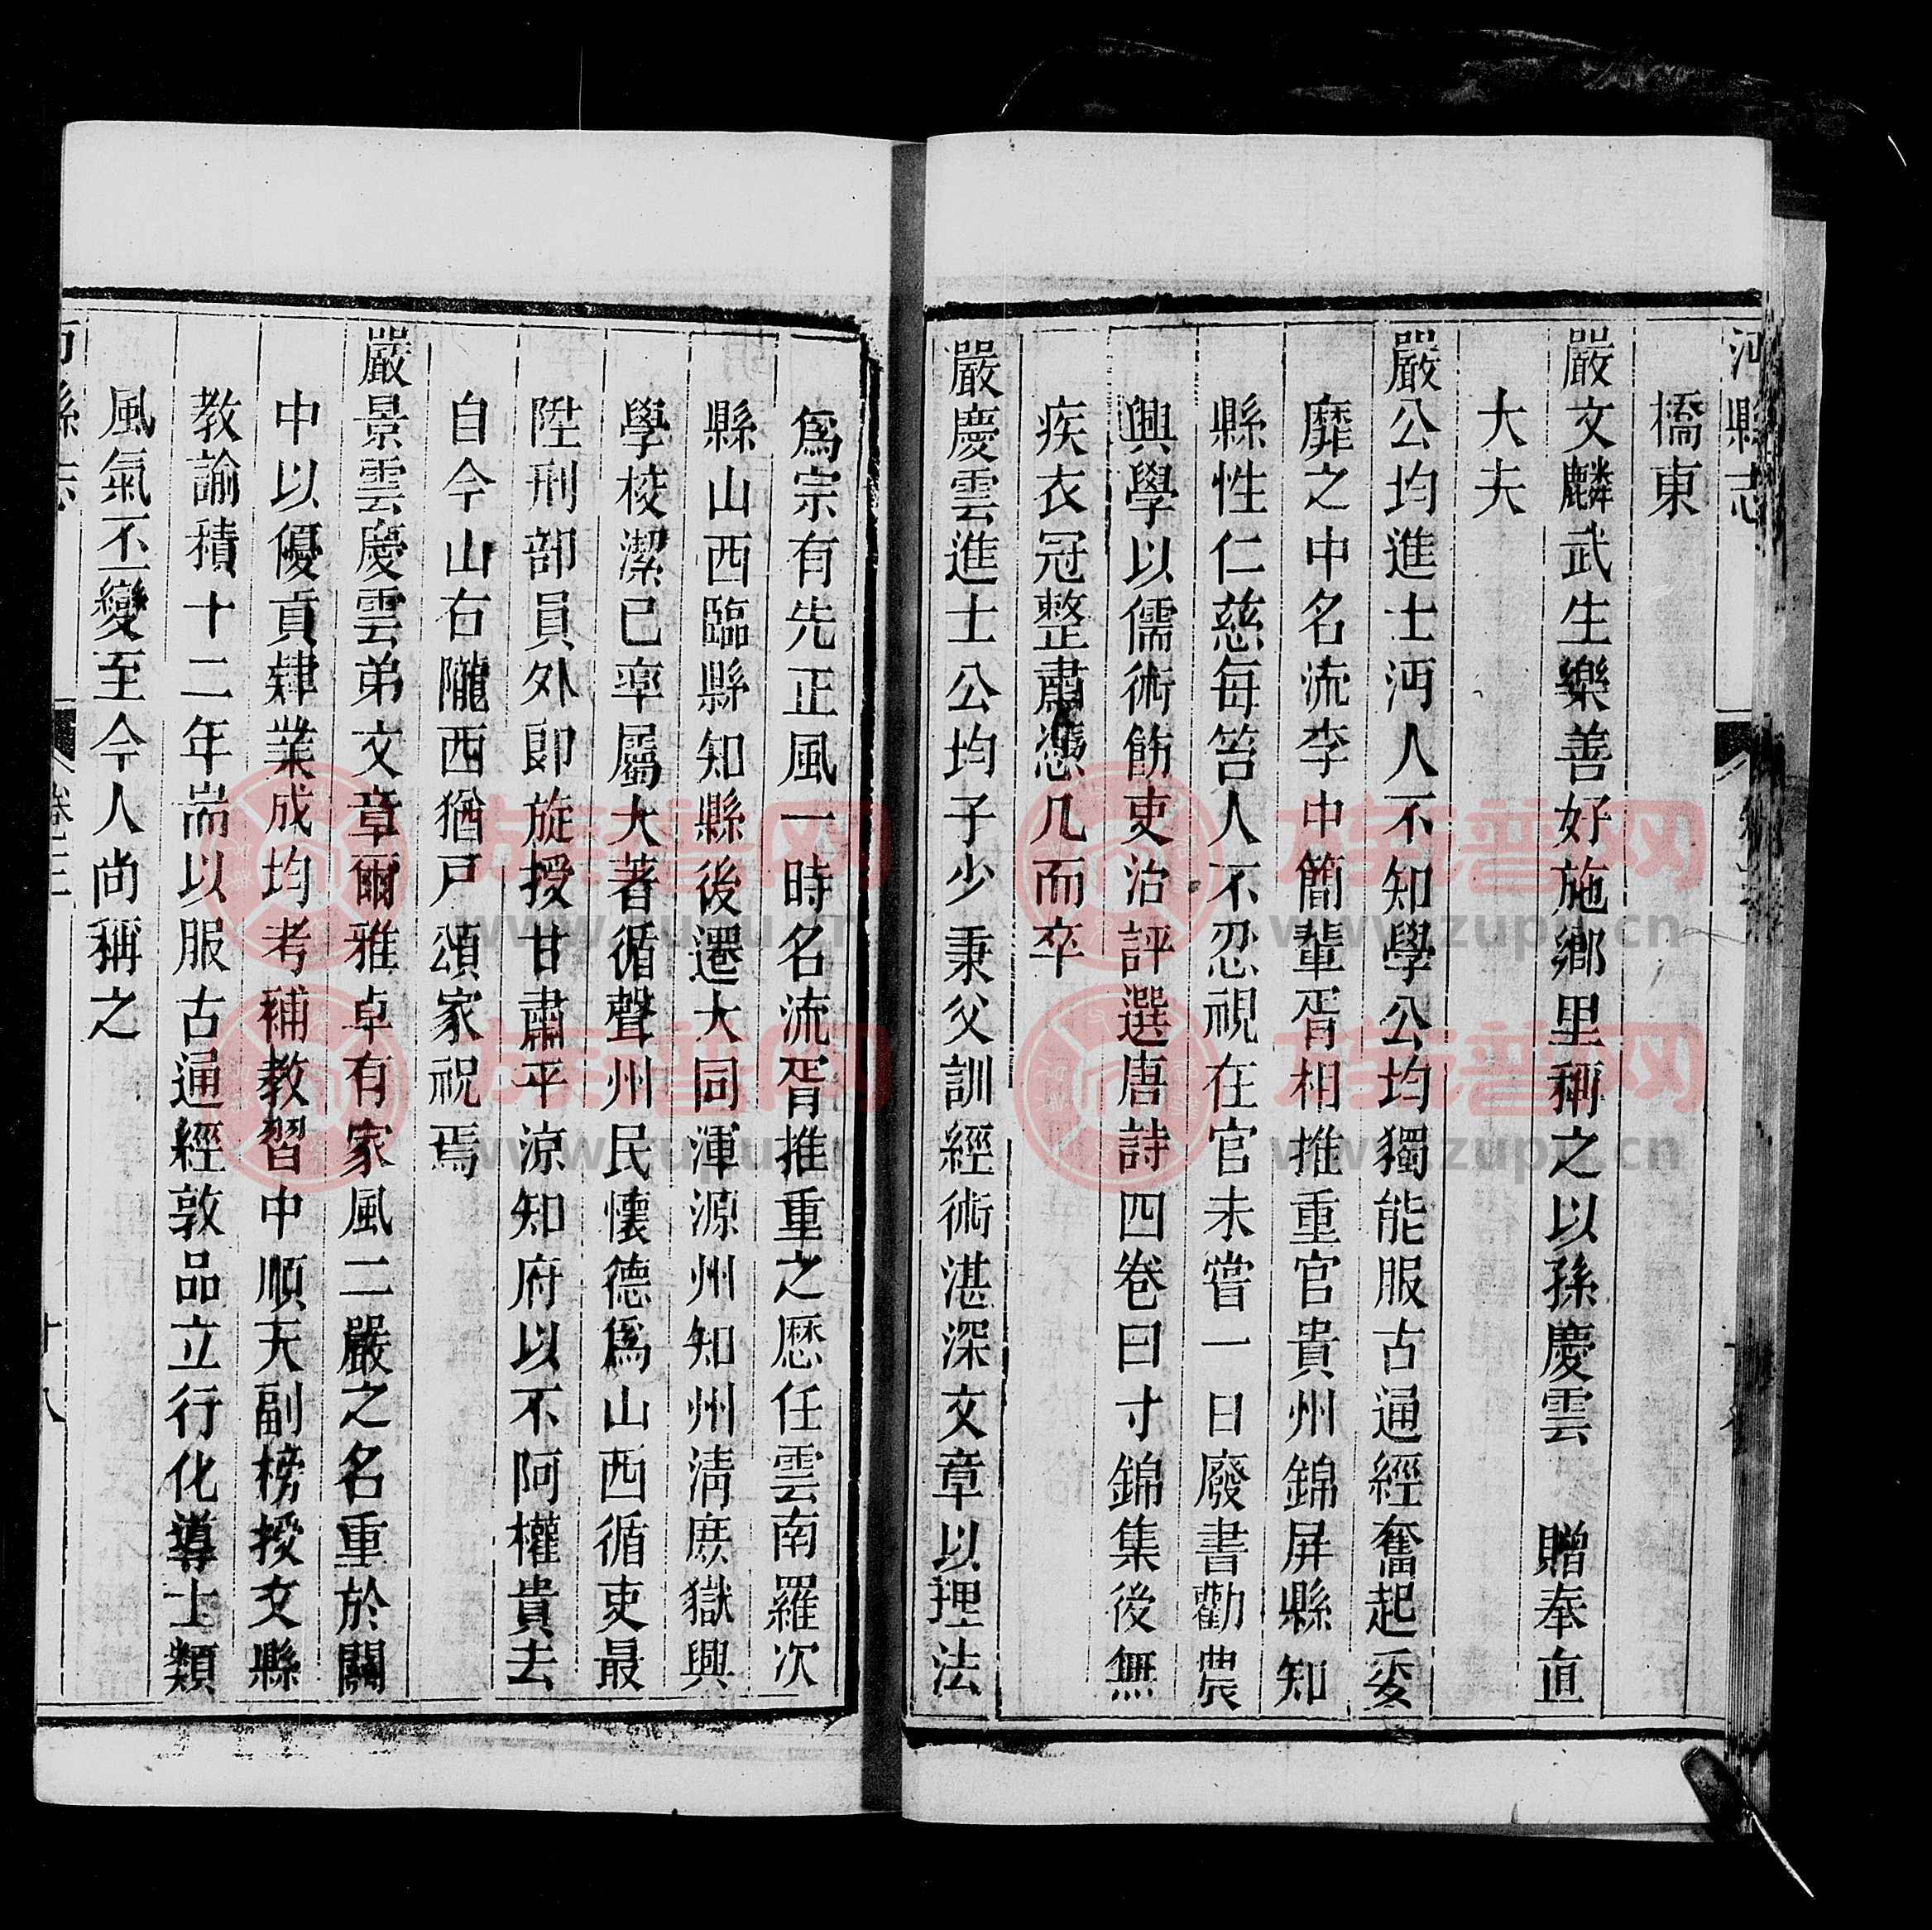 沔縣志
橋東
嚴文麟武生樂善好施鄉里稱之以孫慶雲 贈奉直
大夫
嚴公均進士沔人不知學公均獨能服古通經奮起委
靡之中名流李中簡輩胥相推重官貴州錦屏縣知
縣性仁慈每笞人不忍視在官未嘗一日廢書勸農
興學以儒術飭吏治評選唐詩四卷曰寸錦集後無
疾衣冠整肅慿几而卒
嚴慶雲進士公均子少秉父訓經術湛深文章以理法
爲宗有先正風一時名流胥推重之歷任雲南羅次
縣山西臨縣知縣後遷大同渾源州知州淸庶獄興
學校潔已率屬大著循聲州民懷德爲山西循吏最
陞刑部員外郎旋授甘肅平涼知府以不阿權貴去
自今山右隴西猶戸頌家祝焉
嚴景雲慶雲弟文章爾雅卓有家風二嚴之名重於關
中以優貢肄業成均考補教習中順天副榜授文縣
教諭積十二年耑以服古通經敦品立行化導士類
風氣丕變至今人尚稱之
沔縣志
卷三
十八
族譜网
www.zupu.cn
族譜网
www.zupu.cn
族譜网
www.zupu.cn
族譜网
www.zupu.cn